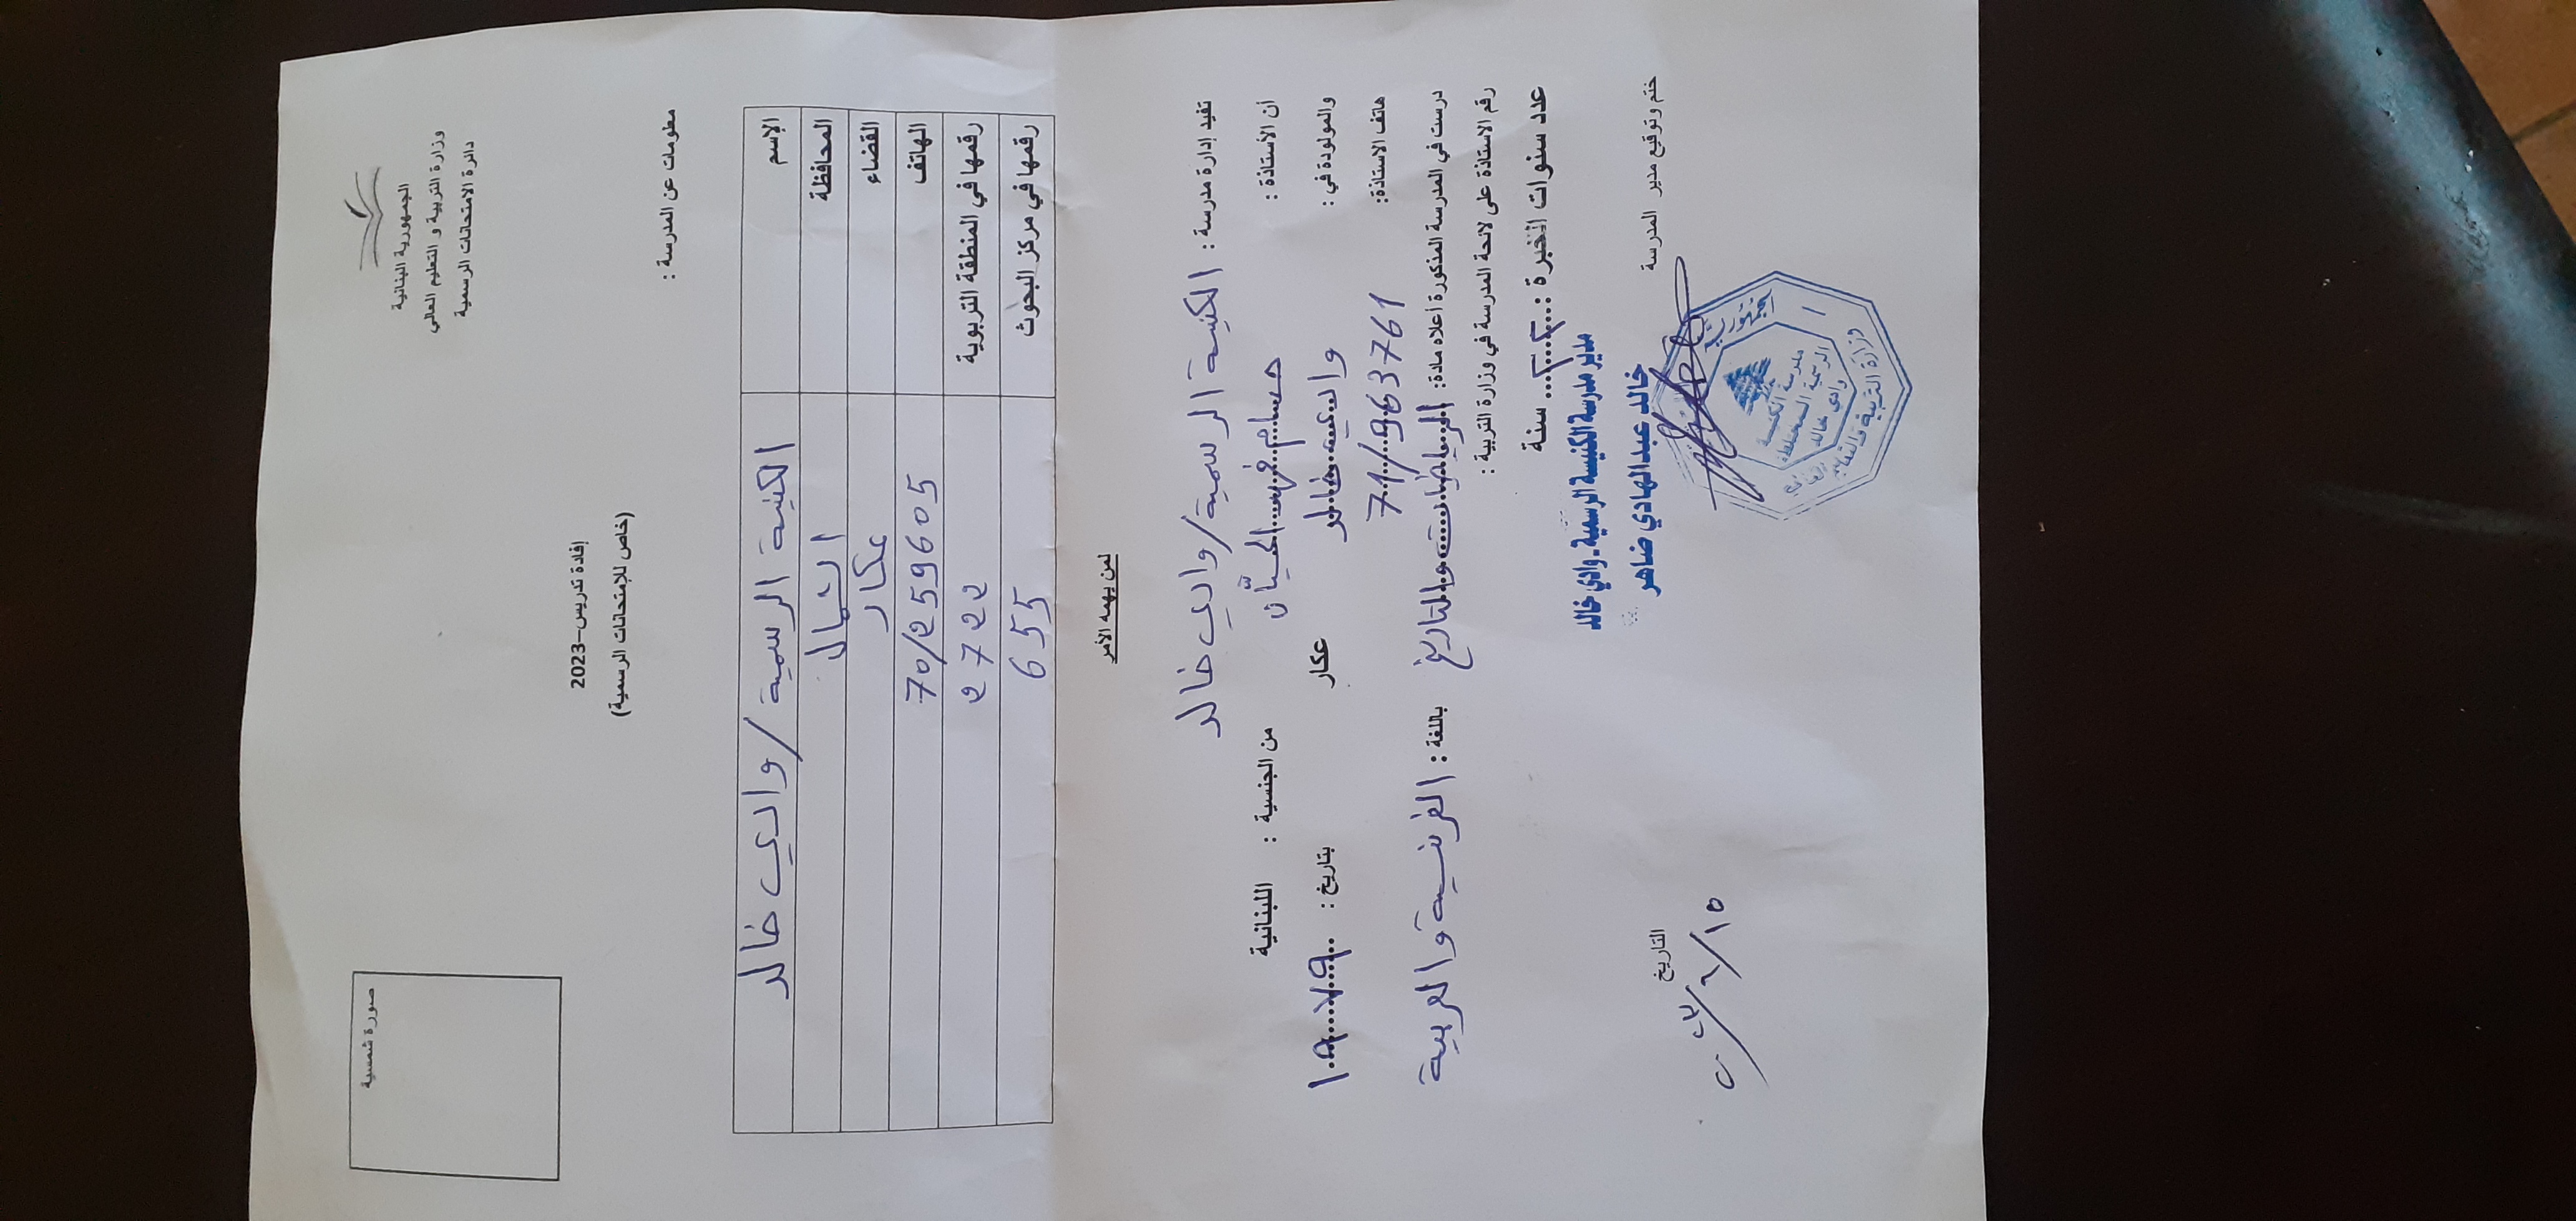 الجمهورية اللبنانية
وزارة التربية و التعليم العالي
دائرة الامتحانات الرسمية
صورة شمسية
إفادة تدريس-2023
(خاص للإمتحانات الرسمية)
معلومات عن المدرسة :
الإسم الكنيسة الرسمية / وادي خالد
المحافظة الشمال
القضاء عكار
الهاتف 70/259605
رقمها في المنطقة التربوية 2722
رقمها في مركز البحوث 655
لمن يهمه الأمر
تفيد إدارة مدرسة : الكنيسة الرسمية / وادي خالد
أن الأستاذة : حسام فهد من الجنسية : اللبنانية
والمولودة في : وادي خالد عكار بتاريخ : ١٩٧٩
هاتف الاستاذة: 71/963761
درست في المدرسة المذكورة أعلاه مادة: الرياضيات والتاريخ باللغة : الفرنسية والعربية
رقم الاستاذة على لائحة المدرسة في وزارة التربية :
عدد سنوات الخبرة : سنة
مدير مدرسة الكنيسة الرسمية - وادي خالد
خالد عبدالهادي ضاهر
ختم وتوقيع مدير المدرسة
التاريخ
٢٠٢٣/٦/١٥
مدرسة الكنيسة
الرسمية المختلطة
وادي خالد
وزارة التربية والتعليم العالي